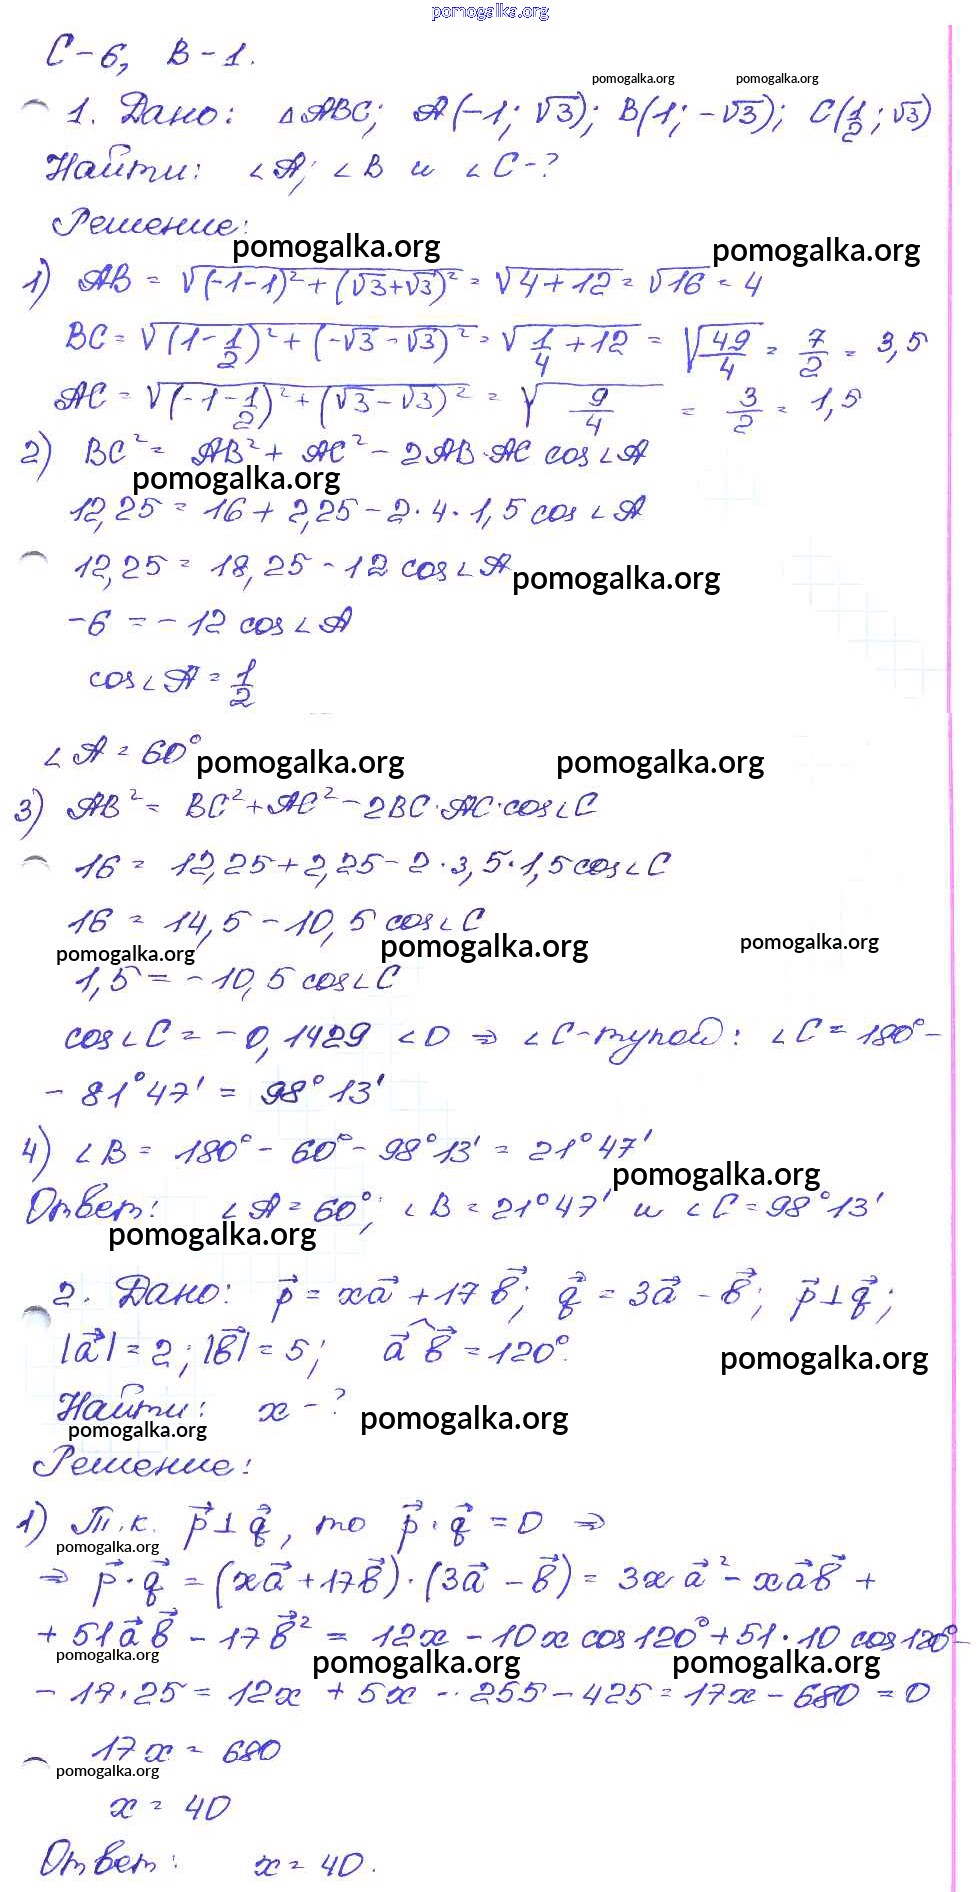 pomogalka.org
С-6, В-1.
pomogalka.org pomogalka.org
1. Дано: △ABC; A(-1; √3); B(1; -√3); C(1/2; √3)
Найти: ∠A; ∠B и ∠C-?
Решение:
pomogalka.org pomogalka.org
1) AB = √(-1-1)² + (√3+√3)² = √4+12 = √16 = 4
BC = √(1-1/2)² + (-√3-√3)² = √1/4+12 = √49/4 = 7/2 = 3,5
AC = √(-1-1/2)² + (√3-√3)² = √9/4 = 3/2 = 1,5
2) BC² = AB² + AC² - 2AB·AC cos∠A
pomogalka.org
12,25 = 16 + 2,25 - 2·4·1,5 cos∠A
12,25 = 18,25 - 12 cos∠A
pomogalka.org
-6 = -12 cos∠A
cos∠A = 1/2
∠A = 60°
pomogalka.org pomogalka.org
3) AB² = BC² + AC² - 2BC·AC·cos∠C
16 = 12,25 + 2,25 - 2·3,5·1,5 cos∠C
16 = 14,5 - 10,5 cos∠C
pomogalka.org pomogalka.org pomogalka.org
1,5 = -10,5 cos∠C
cos∠C = -0,1429 <0 ⇒ ∠C-тупой: ∠C = 180° -
- 81°47' = 98°13'
4) ∠B = 180° - 60° - 98°13' = 21°47'
pomogalka.org
Ответ: ∠A = 60°; ∠B = 21°47' и ∠C = 98°13'
pomogalka.org
2. Дано: p⃗ = xa⃗ + 17b⃗; q⃗ = 3a⃗ - b⃗; p⃗⊥q⃗;
|a⃗| = 2; |b⃗| = 5; a⃗ b⃗ = 120°.
pomogalka.org
Найти: x-?
pomogalka.org pomogalka.org
Решение:
1) Т.к. p⃗⊥q⃗, то p⃗·q⃗ = 0 ⇒
pomogalka.org
⇒ p⃗·q⃗ = (xa⃗ + 17b⃗)·(3a⃗ - b⃗) = 3xa⃗² - xa⃗b⃗ +
+ 51a⃗b⃗ - 17b⃗² = 12x - 10x cos120° + 51·10 cos120° -
pomogalka.org pomogalka.org pomogalka.org
- 17·25 = 12x + 5x - 255 - 425 = 17x - 680 = 0
17x = 680
pomogalka.org
x = 40
Ответ: x = 40.